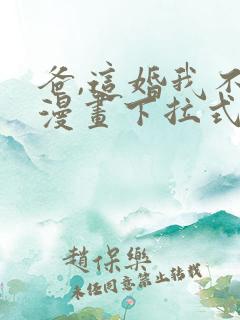 爸,這婚我不
漫畫下拉式
趙保樂
未經同意禁止轉載